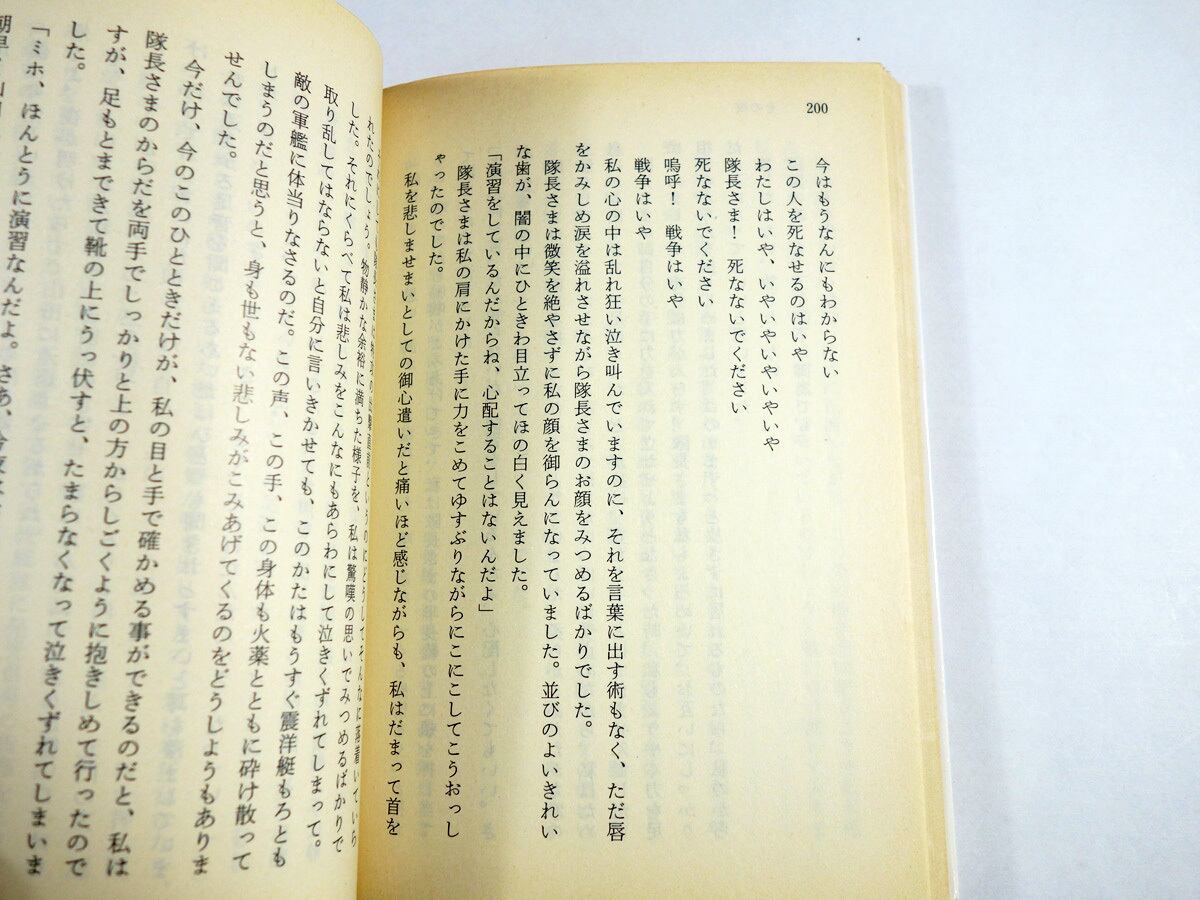 200
今はもうなんにもわからない
この人を死なせるのはいや
わたしはいや、いやいやいやいやいや
隊長さま! 死なないでください
死なないでください
嗚呼! 戦争はいや
戦争はいや
私の心の中は乱れ狂い泣き叫んでいますのに、それを言葉に出す術もなく、ただ唇
をかみしめ涙を溢れさせながら隊長さまのお顔をみつめるばかりでした。
隊長さまは微笑を絶やさずに私の顔を御らんになっていました。並びのよいきれい
な歯が、闇の中にひときわ目立ってほの白く見えました。
「演習をしているんだからね、心配することはないんだよ」
隊長さまは私の肩にかけた手に力をこめてゆすぶりながらにこにこしてこうおっし
ゃったのでした。
私を悲しませまいとしての御心遣いだと痛いほど感じながらも、私はだまって首を
れたのでしょう。物静かな余裕に満ちた様子を、私は驚嘆の思いでみつめるばかりで
した。それにくらべて私は悲しみをこんなにもあらわにして泣きくずれてしまって。
取り乱してはならないと自分に言いきかせても、このかたはもうすぐ震洋艇もろとも
敵の軍艦に体当りなさるのだ。この声、この手、この身体も火薬とともに砕け散って
しまうのだと思うと、身も世もない悲しみがこみあげてくるのをどうしようもありま
せんでした。
今だけ、今のこのひとときだけが、私の目と手で確かめる事ができるのだと、私は
隊長さまのからだを両手でしっかりと上の方からしごくように抱きしめて行ったので
すが、足もとまできて靴の上にうっ伏すと、たまらなくなって泣きくずれてしまいま
した。
「ミホ、ほんとうに演習なんだよ。さあ、